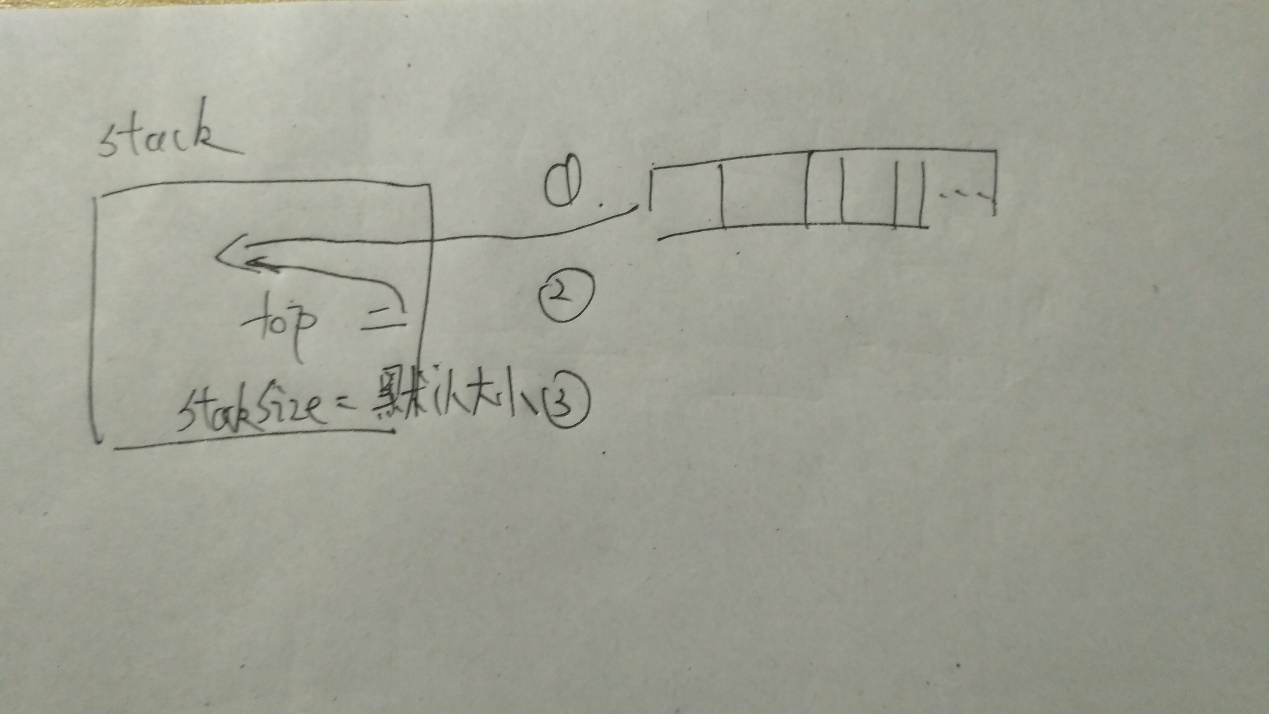 stack
①
...
②
top =
stackSize = 默认大小 ③